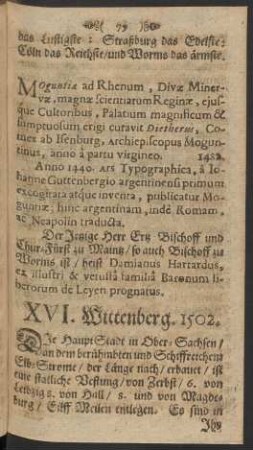 79
das Lustigste: Straßburg das Edelste:
Cöln das Reichste/und Worms das ärmste.
Moguntiæ ad Rhenum, Divæ Miner-
væ, magnæ scientiarum Reginæ, ejus-
que Cultoribus, Palatium magnificum &
sumptuosum erigi curavit Dietherus, Co-
mes ab Isenburg, Archiepiscopus Mogun-
tinus, anno à partu virgineo. 1482.
Anno 1440. ars Typographica, à Jo-
hanne Guttenbergio argentinensi primum
excogitata atque inventa, publicatur Mo-
guntiæ; hinc argentinam, indè Romam,
ac Neapolin traducta.
Der Jetzige Herr Ertz Bischoff und
Chur-Fürst zu Maintz/ so auch Bischoff zu
Worms ist/ heist Damianus Hartardus,
ex illustri & vetustâ familiâ Baronum li-
berorum de Leyen prognatus.
XVI. Wittenberg. 1502.
Die Haupt Stadt in Ober-Sachsen/
an dem berühmbten und Schiffreichem
Elb-Strome/ der Länge nach/ erbauet/ ist
eine statliche Vestung/ von Zerbst/ 6. von
Leipzig 9. von Hall/ 8. und von Magde-
burg/ Eilff Meilen entlegen. Es sind in
Ihr